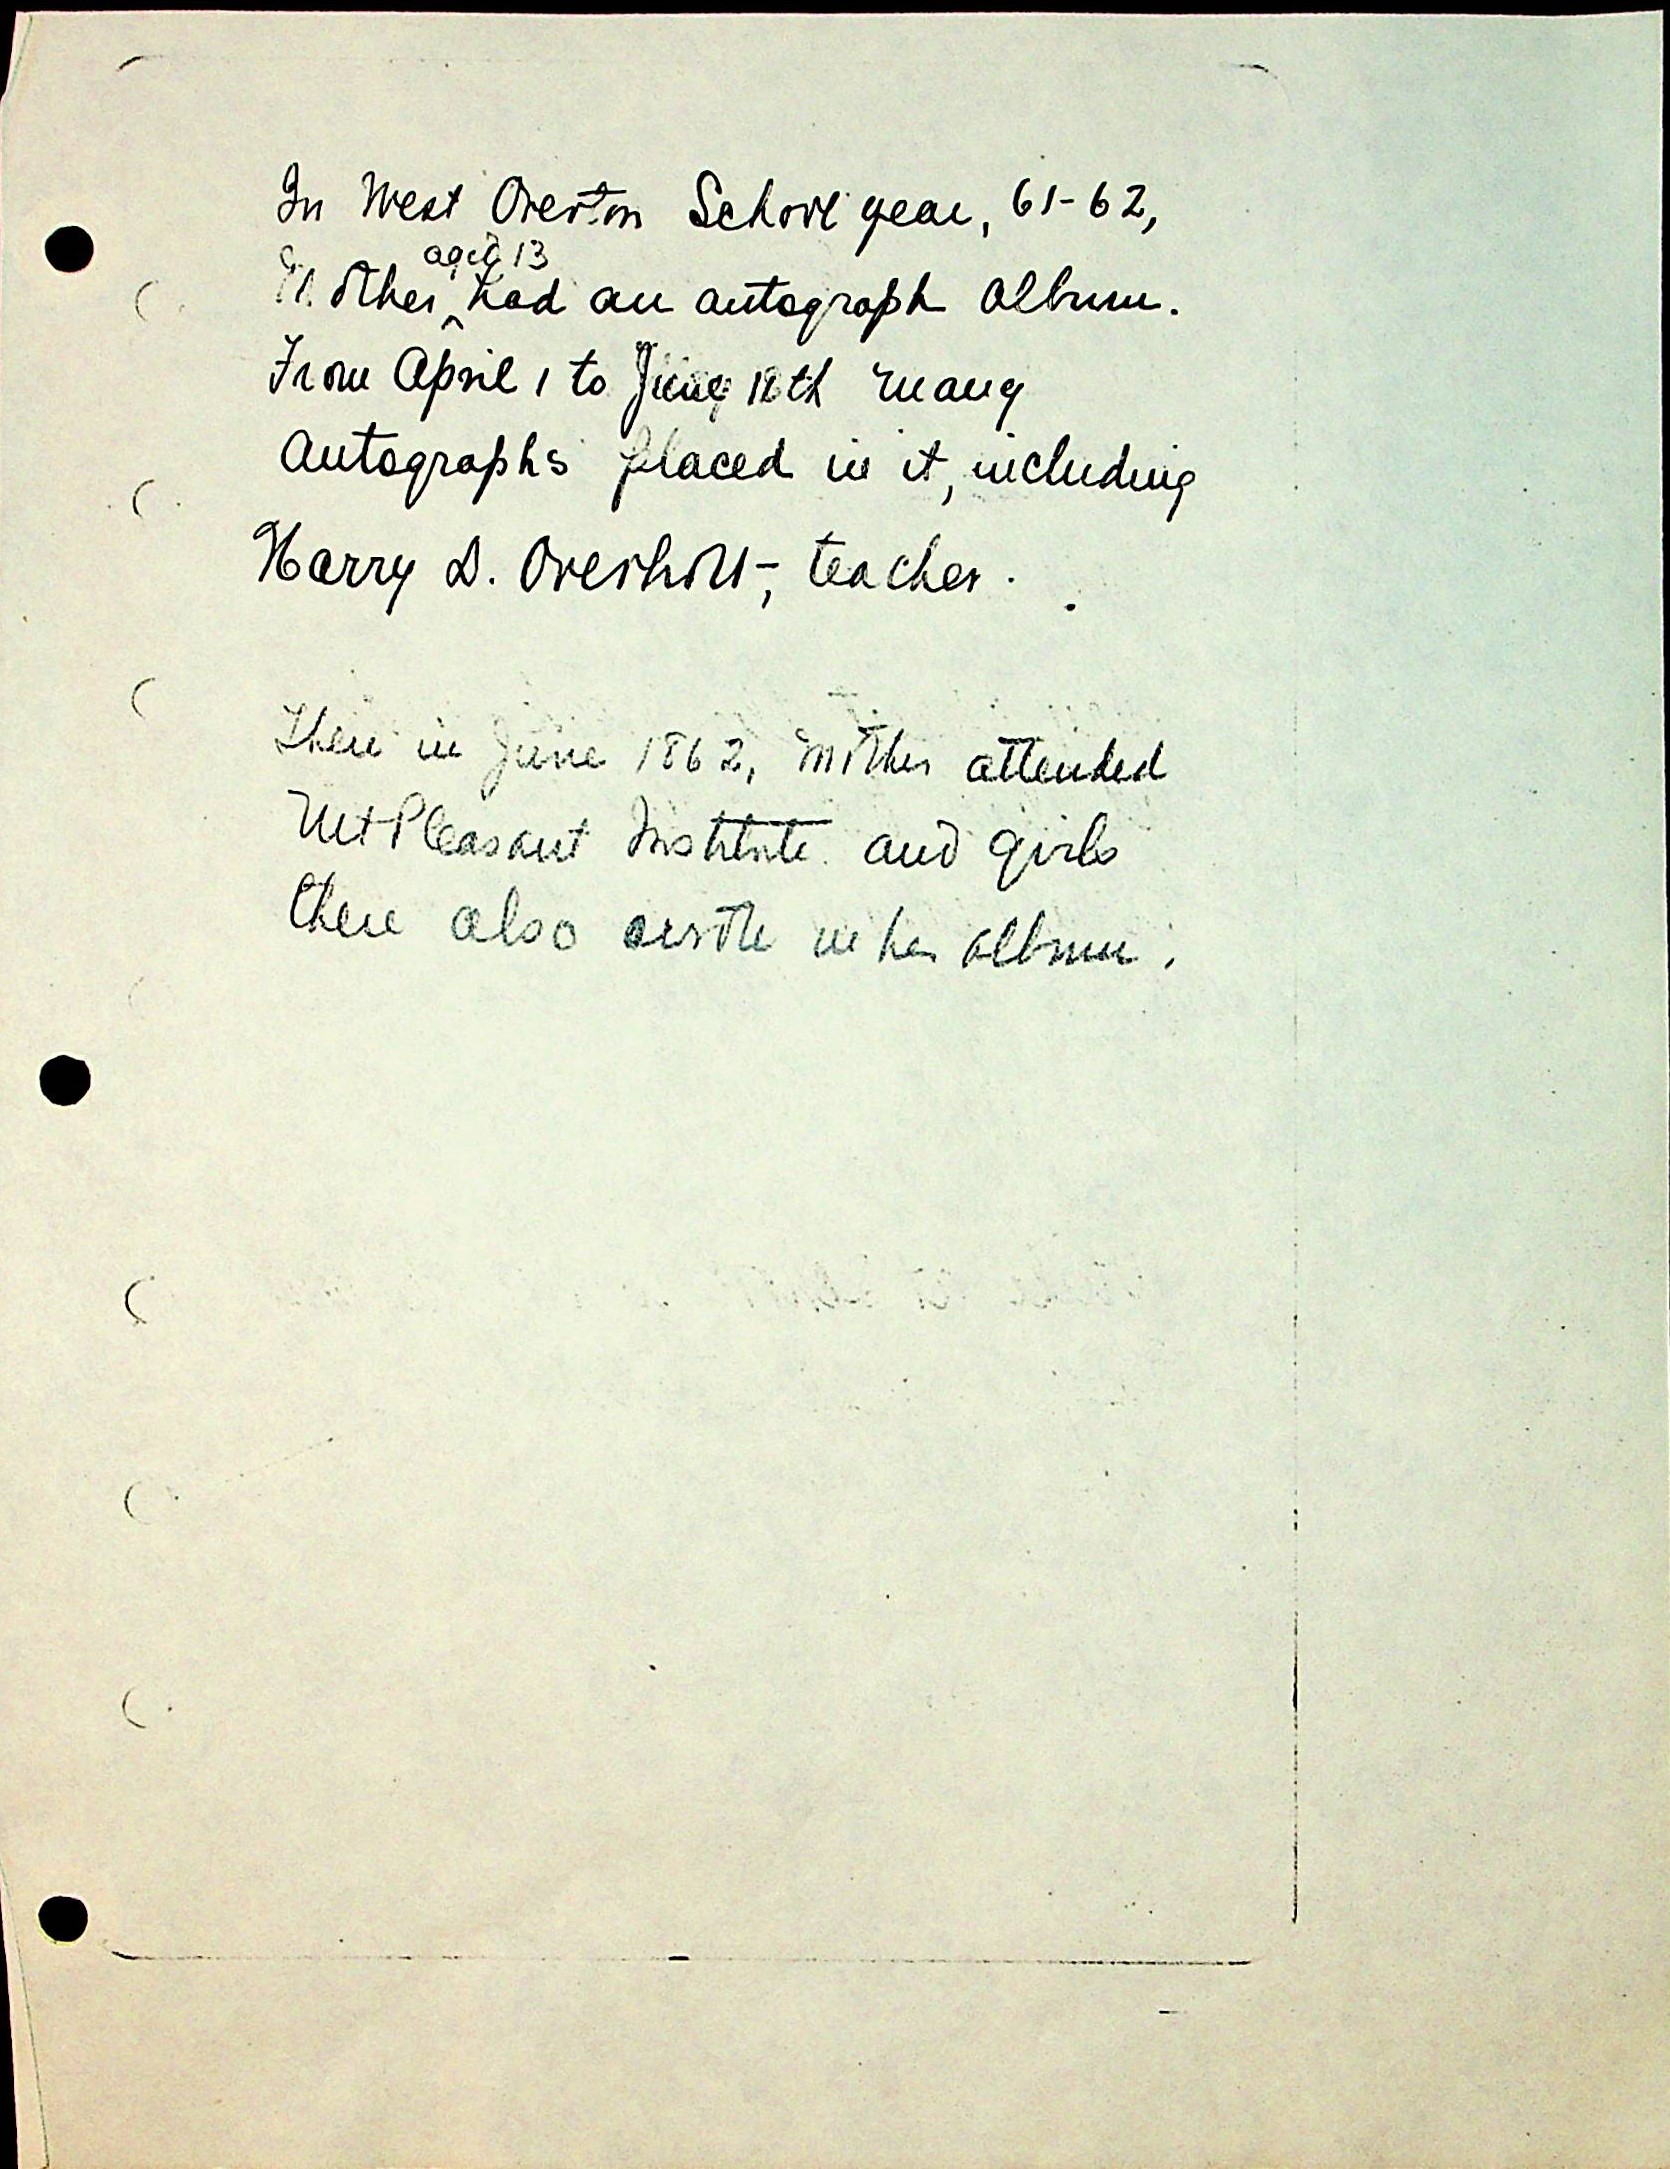 In West Overton School year, 61-62,
Mother ^aged 13 had an autograph album.
From April 1 to June 18th many
autographs placed in it, including
Harry D. Overholt, teacher.
Then in June 1862, Mother attended
Mt Pleasant Institute and girls
there also wrote in her album.